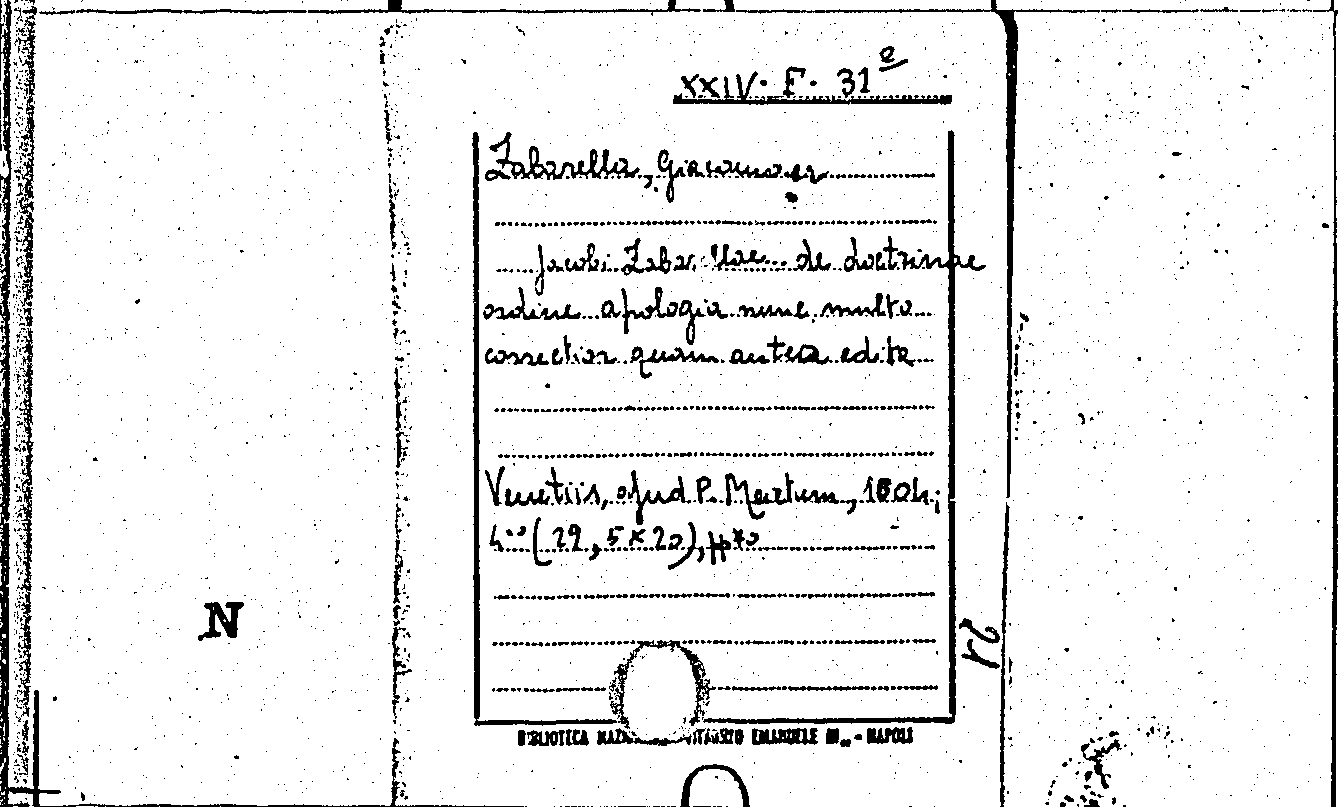 XXIV. F. 31 e
Zabarella, Giacomo
Jacobi Zabarellae de doctrinae
ordine apologia nunc multo
correctior quam antea edita
Venetiis, apud P. Mertum, 1604;
4° (29,5 x 20), pp
N
21
BIBLIOTECA NAZ VITTORIO EMANUELE III - NAPOLI